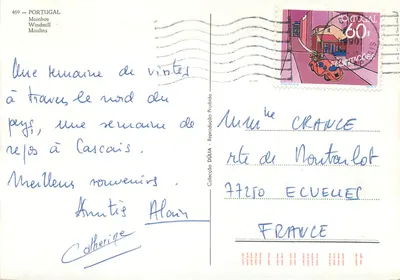 469 - PORTUGAL
Moinhos
Windmill
Moulins
Une semaine de visites
à travers le nord du
pays, une semaine de
repos à Cascais.
Meilleurs souvenirs.
Amitiés Alain
Catherine
Colecção DÚLIA - Reprodução Proibida
PORTUGAL
60.
Mme CRANCE
rte de Montarlot
77250 ECUELLES
FRANCE